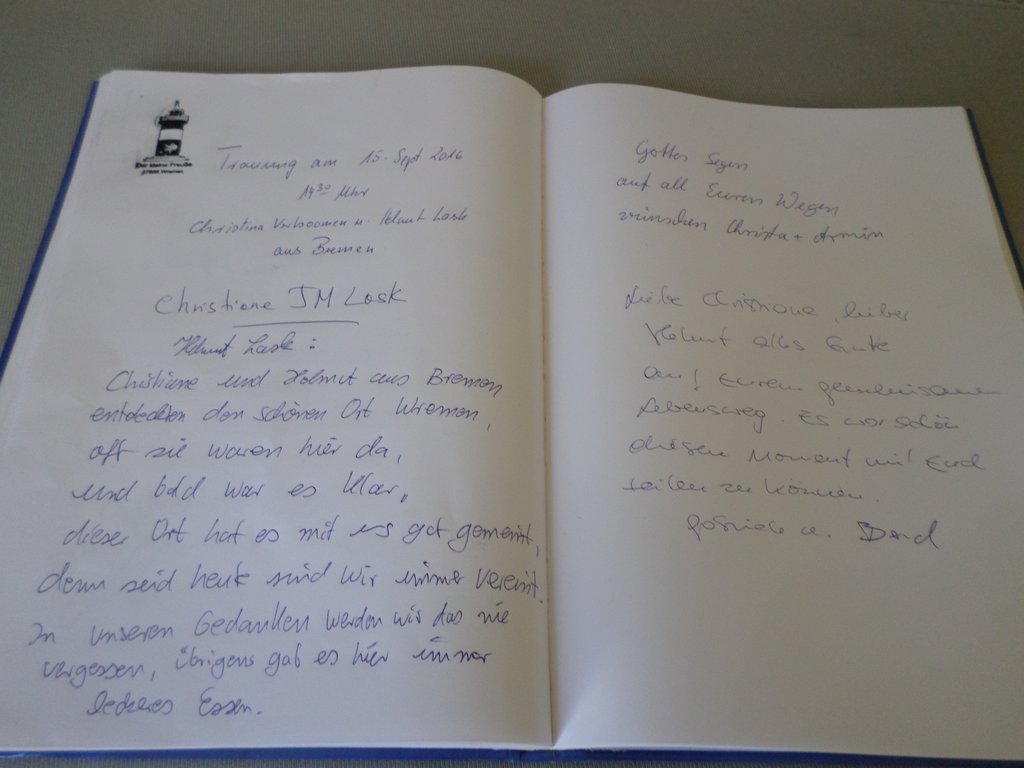 Der kleine Preuße
27638 Wremen
Trauung am 15. Sept 2016
14³⁰ Uhr
Helmut Lask
aus Bremen
Christiane JM Lask
Helmut Lask :
Christiane und Helmut aus Bremen
entdeckten den schönen Ort Wremen,
oft sie waren hier da,
und bald war es klar,
dieser Ort hat es mit uns gut gemeint,
denn seid heute sind wir immer vereint.
In unseren Gedanken werden wir das nie
vergessen, übrigens gab es hier immer
leckeres Essen.
Gottes Segen
auf all Euren Wegen
wünschen Christa + Armin
Liebe Christiane, lieber
Helmut alles Gute
auf Eurem gemeinsamen
Lebensweg. Es war schön
diesen Moment mit Euch
teilen zu können.
Gabriele u. Bernd